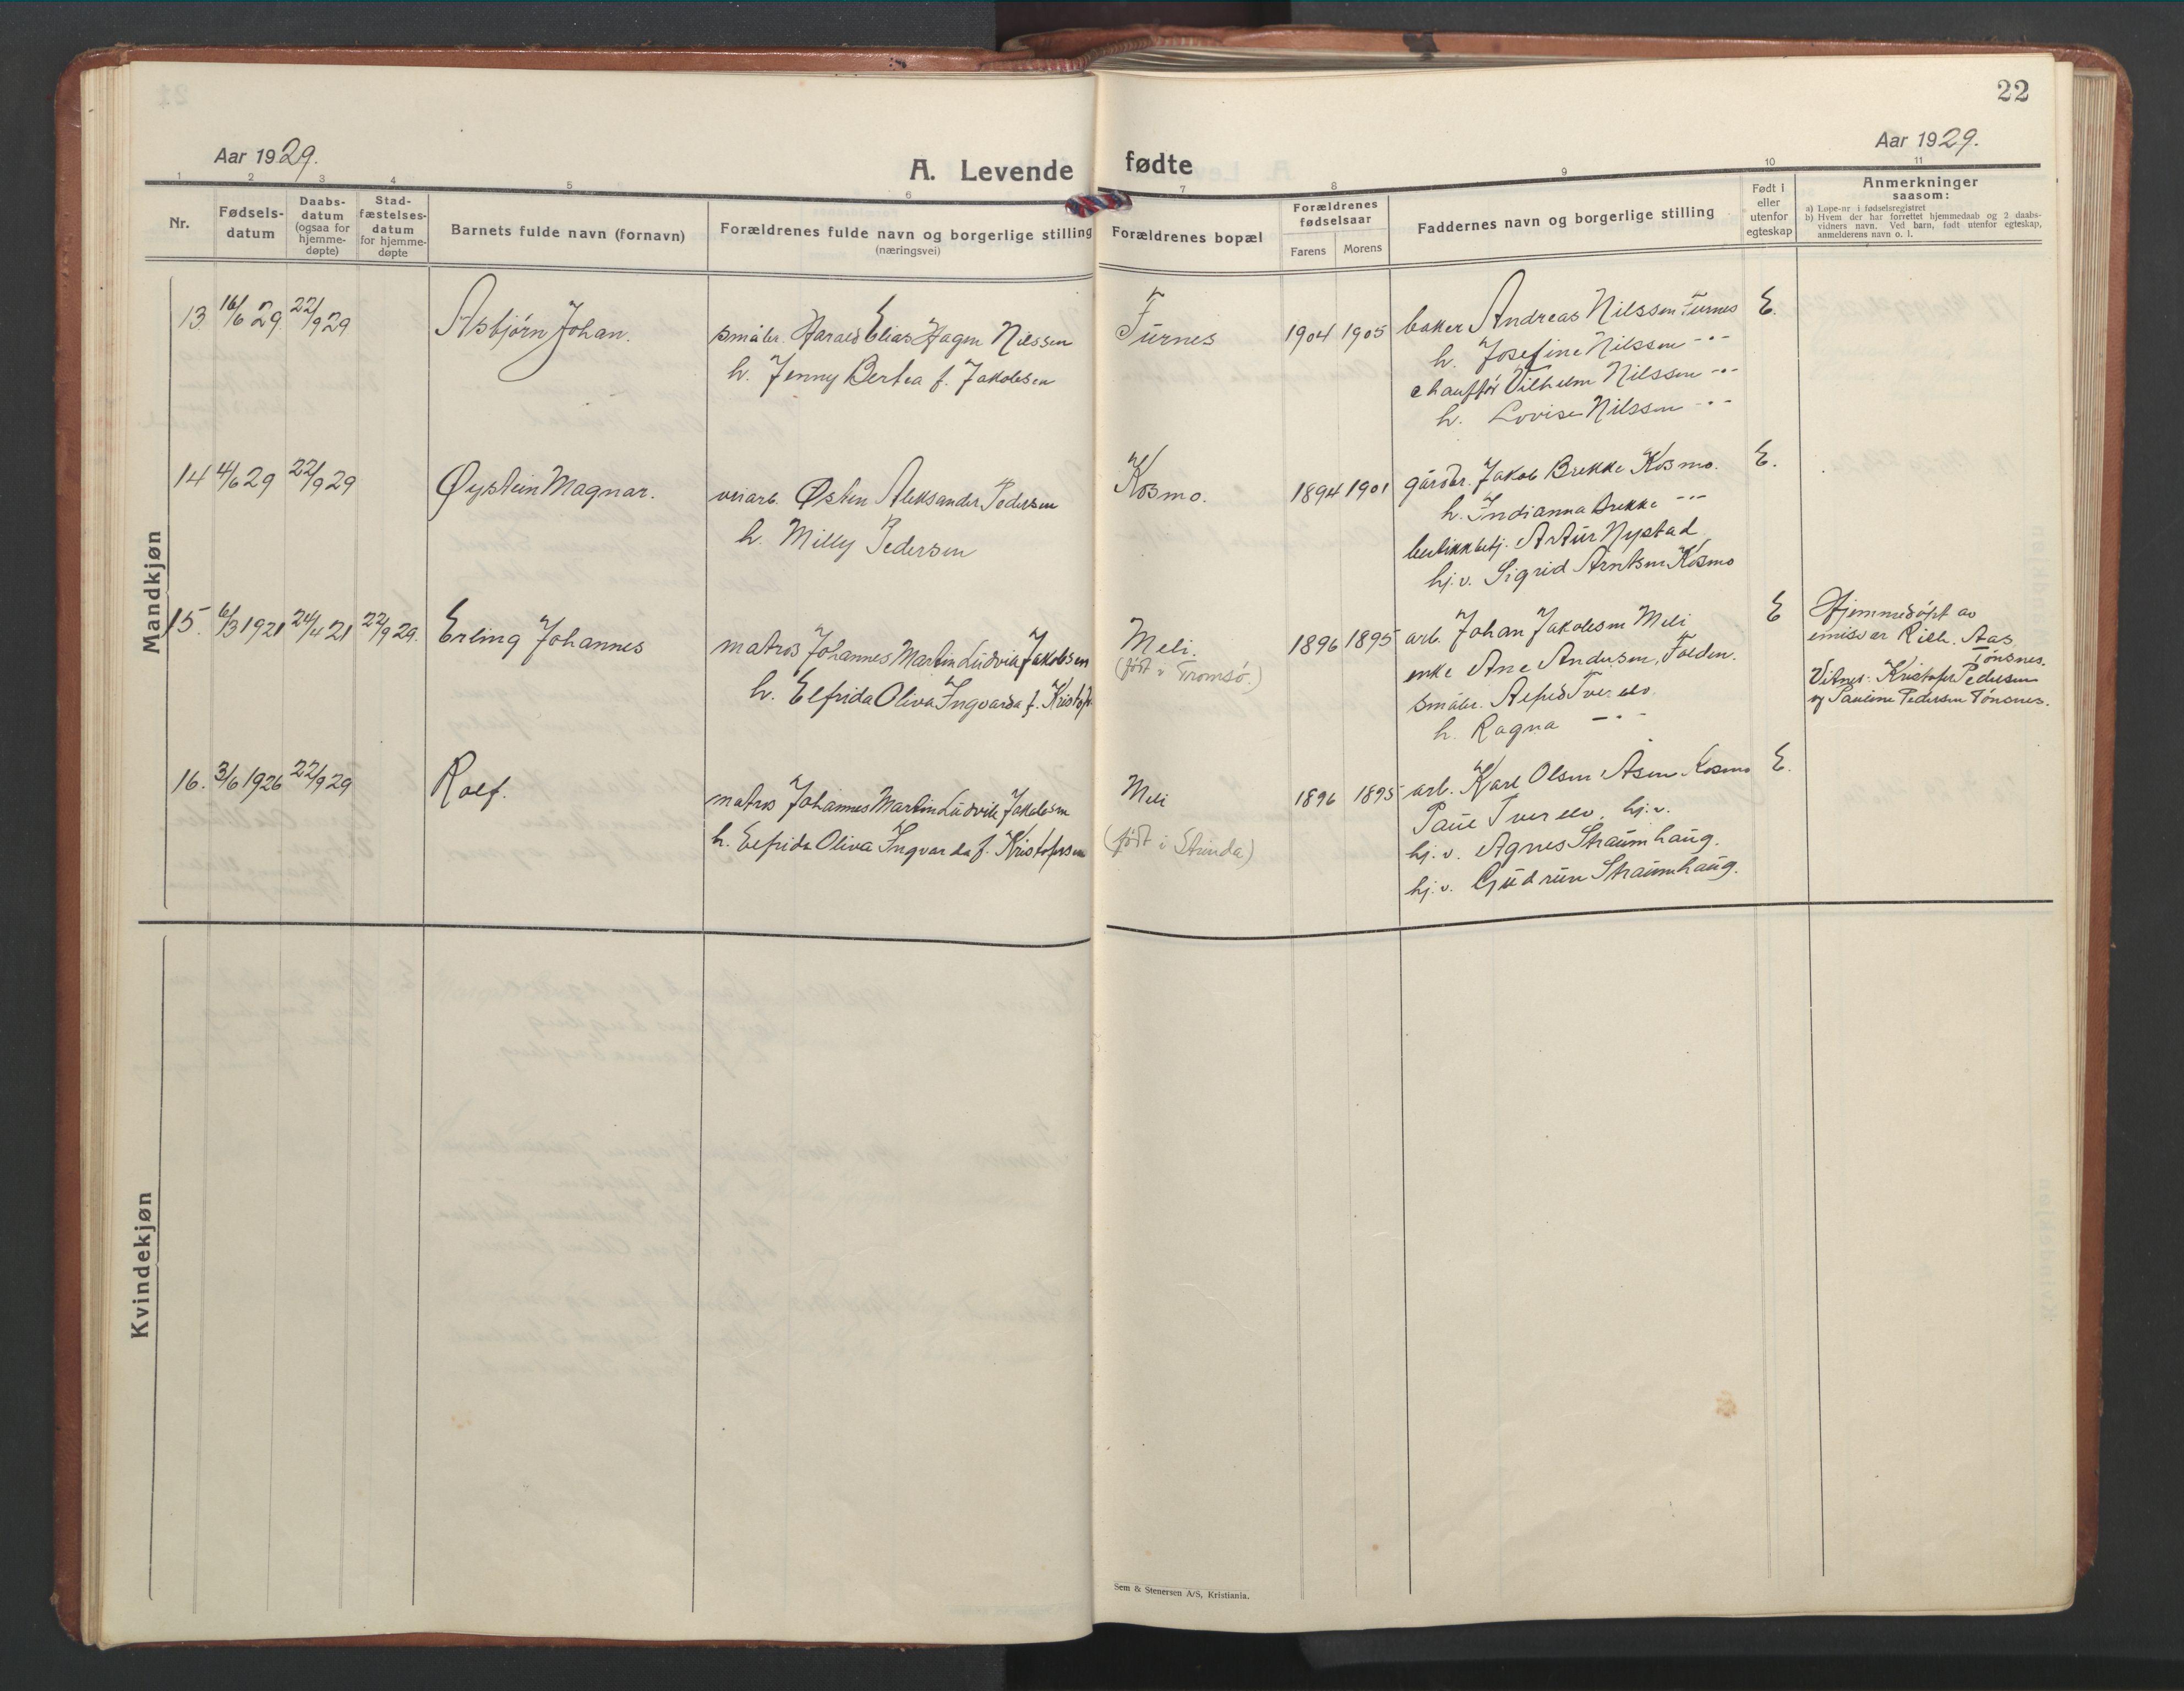 22
Aar 1929.
Aar 1929.
A. Levende fødte
1 2 3 4 5 6 7 8 9 10 11
Nr.
Fødsels-
datum
Daabs-
datum
(ogsaa for
hjemme-
døpte)
Stad-
fæstelses-
datum
for hjemme-
døpte
Barnets fulde navn (fornavn)
Forældrenes fulde navn og borgerlige stilling
(næringsvei)
Forældrenes bopæl
Forældrenes
fødselsaar
Farens Morens
Faddernes navn og borgerlige stilling
Født i
eller
utenfor
egteskap
Anmerkninger
saasom:
a) Løpe-nr i fødselsregistret
b) Hvem der har forrettet hjemmedaab og 2 daabs-
vidners navn. Ved barn, født utenfor egteskap,
anmelderens navn o. l.
Mandkjøn
13 16/6 29 22/9 29 Asbjørn Johan.
småbr. Harald Elias Hagen Nilssen
h. Jenny Bertea f. Jakobsen
Furnes 1904 1905
baker Andreas Nilssen Furnes E.
h. Josefine Nilssen -"-
chauffør Vilhelm Nilssen -"-
h. Lovise Nilssen -"-
14 4/6 29 22/9 29 Øystein Magnar.
veiarb. Østen Aleksander Pedersen
h. Milly Pedersen
Kosmo. 1894 1901
gårdbr. Jakob Brekke Kosmo. E.
h. Indianna Brekke -"-
butikkbetj. Artur Nystad
hj.v. Sigrid Arntsen Kosmo
15. 6/3 1921 24/4 21 22/9 29. Erling Johannes
matros Johannes Martin Ludvik Jakobsen
h. Elfrida Oliva Ingvarda f. Kristofs.
Meli. 1896 1895
(født i Tromsø.)
arb. Johan Jakobsen Meli E
enke Ane Andersen, Folden.
småbr. Alfred Tverelv.
h. Ragna -"-
Hjemmedøpt av
emisær Rikh. Aas,
Tønsnes.
Vitner: Kristofer Pedersen
og Pauline Pedersen Tønsnes.
16. 3/6 1926 22/9 29 Rolf.
matros Johannes Martin Ludvik Jakobsen
h. Elfrida Oliva Ingvarda f. Kristofersen
Meli 1896 1895
(født i Strinda)
arb. Karl Olsen Åsen Kosmo E.
Paul Tverelv. hj.v.
hj.v. Agnes Straumhaug.
hj.v. Gudrun Straumhaug.
Kvindekjøn
Sem & Stenersen A/S, Kristiania.